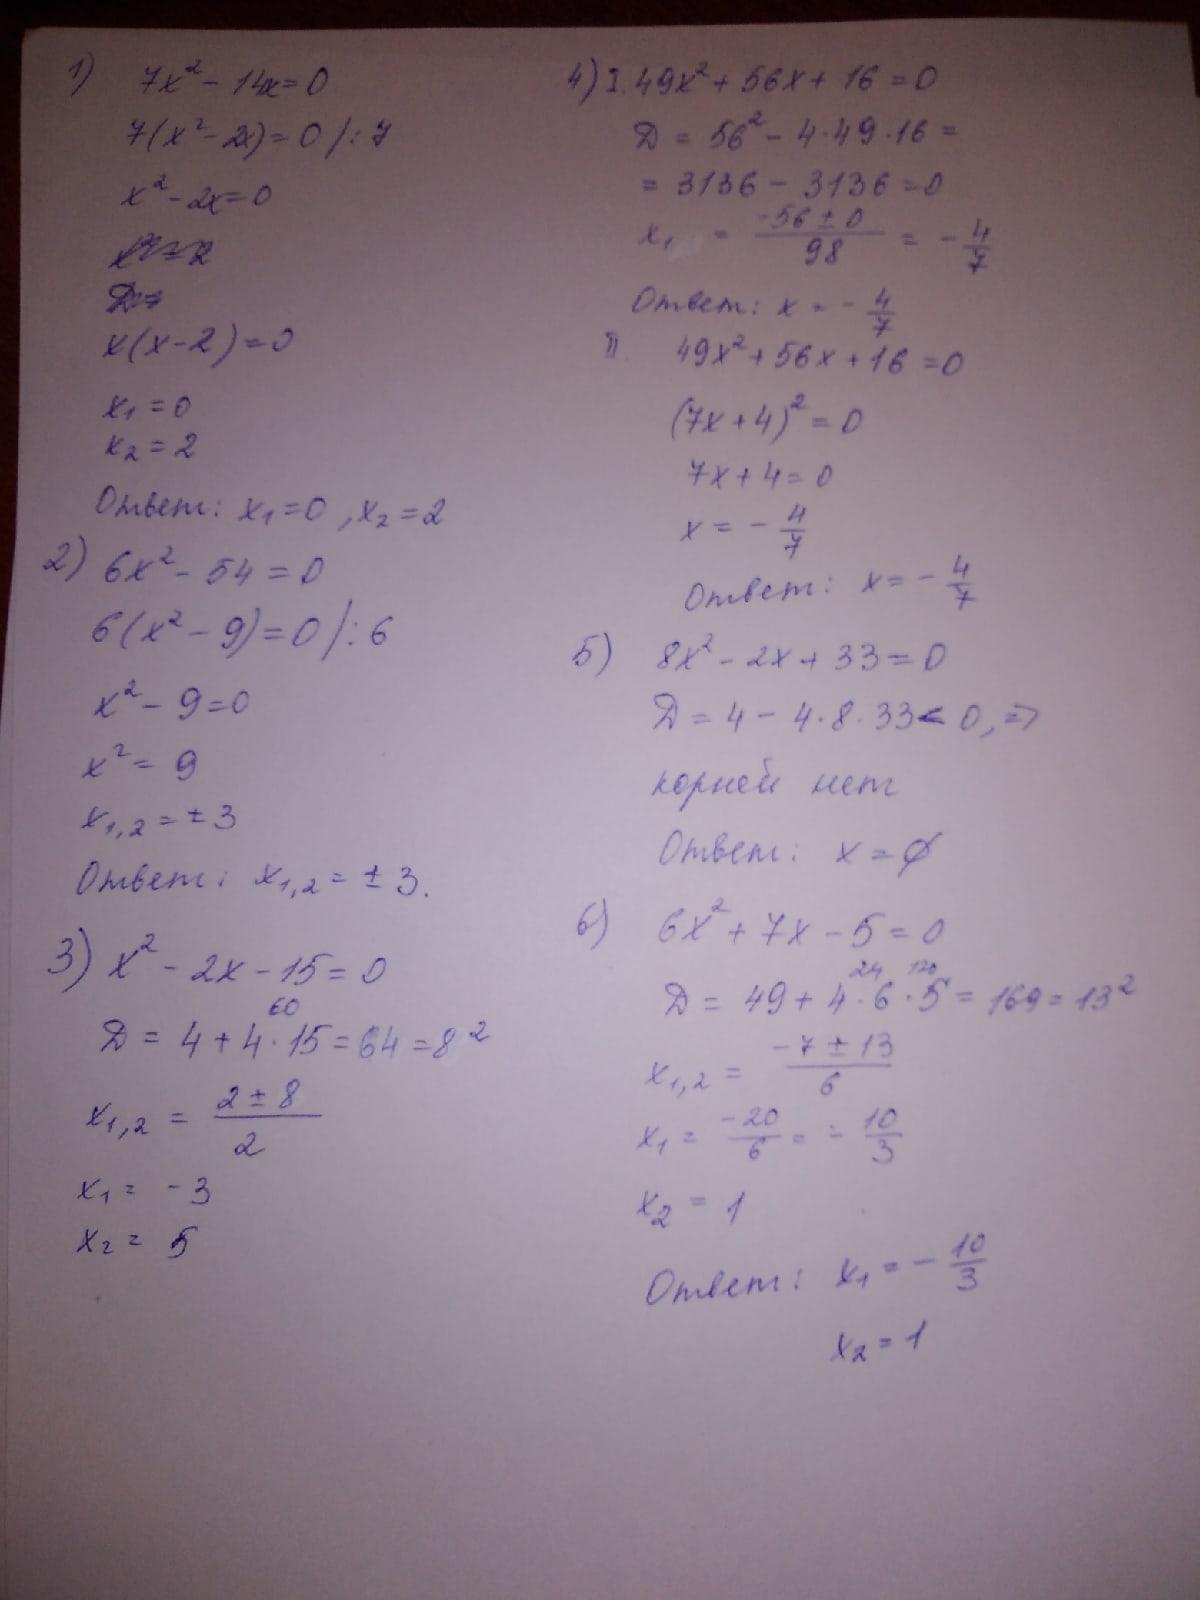 1) 7x² - 14x = 0
7(x² - 2x) = 0 /: 7
x² - 2x = 0
x(x - 2) = 0
x₁ = 0
x₂ = 2
Ответ: x₁ = 0, x₂ = 2
2) 6x² - 54 = 0
6(x² - 9) = 0 /: 6
x² - 9 = 0
x² = 9
x₁,₂ = ± 3
Ответ: x₁,₂ = ± 3.
3) x² - 2x - 15 = 0
60
Д = 4 + 4 · 15 = 64 = 8²
x₁,₂ = (2 ± 8)/2
x₁ = - 3
x₂ = 5
4) I. 49x² + 56x + 16 = 0
Д = 56² - 4 · 49 · 16 =
= 3136 - 3136 = 0
x₁ = (-56 ± 0)/98 = - 4/7
Ответ: x = - 4/7
II. 49x² + 56x + 16 = 0
(7x + 4)² = 0
7x + 4 = 0
x = - 4/7
Ответ: x = - 4/7
5) 8x² - 2x + 33 = 0
Д = 4 - 4 · 8 · 33 < 0, =>
корней нет
Ответ: x = ∅
6) 6x² + 7x - 5 = 0
24 120
Д = 49 + 4 · 6 · 5 = 169 = 13²
x₁,₂ = (-7 ± 13)/6
x₁ = -20/6 = - 10/3
x₂ = 1
Ответ: x₁ = - 10/3
x₂ = 1